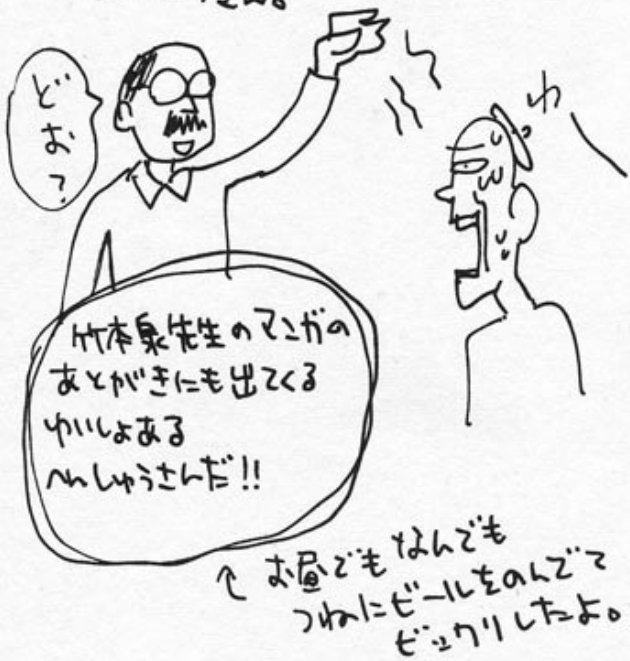 どお？
わ
竹本泉先生のマンガの
あとがきにも出てくる
ゆいしょある
へんしゅうさんだ!!
お昼でもなんでも
つねにビールをのんでて
ビックリしたよ。